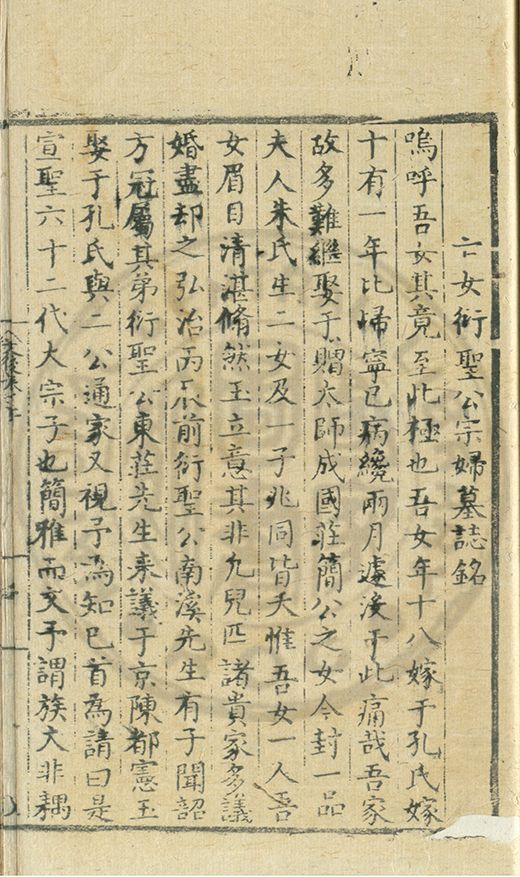 亡女衍聖公宗婦墓誌銘
嗚呼吾女其竟至此極也吾女年十八嫁于孔氏嫁
十有一年比歸寧已病纔兩月遽沒于此痛哉吾家
故多難繼娶于贈太師成國莊簡公之女今封一品
夫人朱氏生二女及一子兆同皆夭惟吾女一人吾
女眉目清湛翛然玉立意其非凢兒匹諸貴家多議
婚盡却之弘治丙辰前衍聖公南溪先生有子聞韶
方冠屬其弟衍聖公東莊先生来議于京陳都憲玉
娶于孔氏與二公通家又視予為知已首為請曰是
宣聖六十二代大宗子也簡雅而文予謂族大非耦